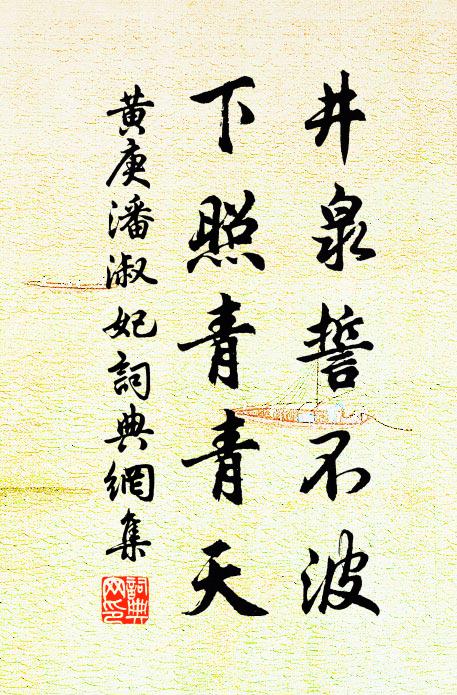 井泉誓不波
下照青青天
黄庚潘淑妃詞典網集
詞典网印